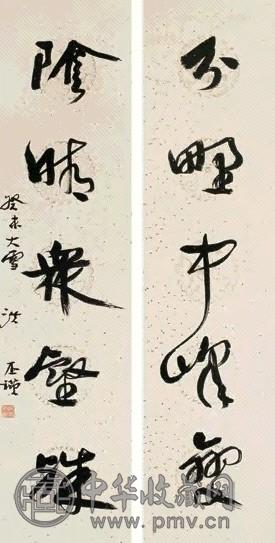 分野中峰變
陰晴眾壑殊
癸未大雪 洪厚甜
中华收藏网
www.pmv.cn